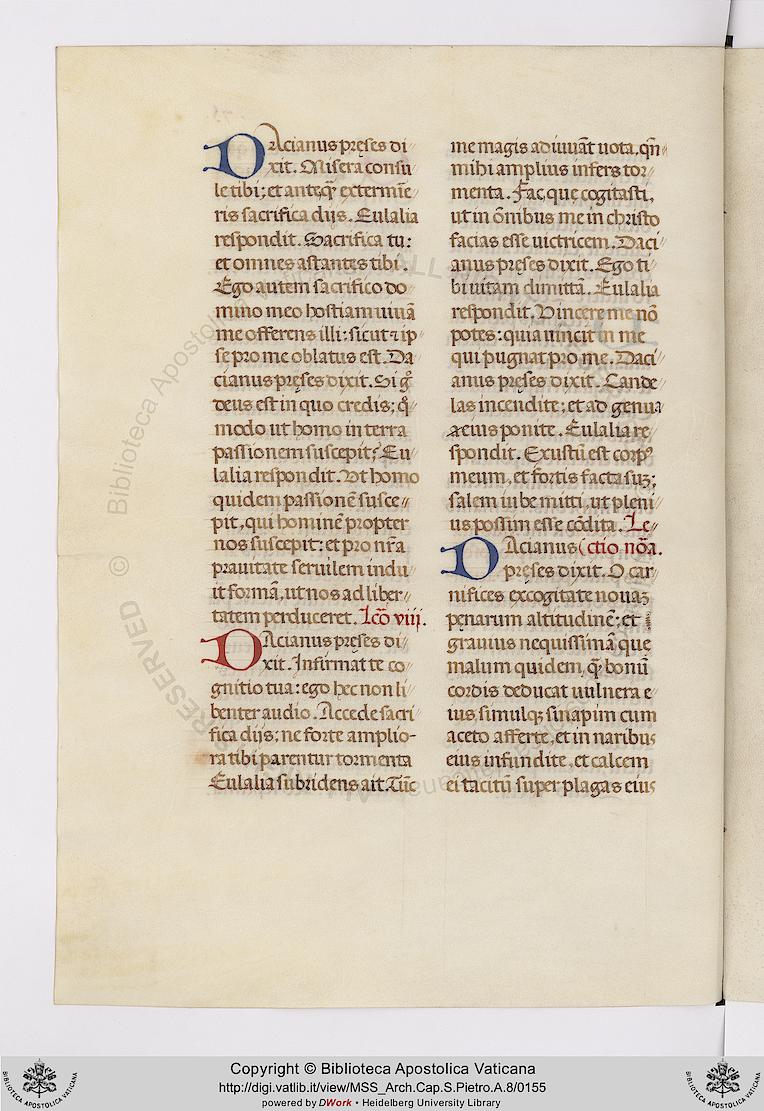 DAcianus pręses di
xit. Misera consu
le tibi; et anteq̃ extermīe
ris sacrifica dijs. Eulalia
respondit. Sacrifica tu:
et omnes astantes tibi.
Ego autem sacrifico do
mino meo hostiam uiuā
me offerens illi: sicut ⁊ ip
se pro me oblatus est. Da
cianus pręses dixit. Si gͦ
deus est in quo credis; qͦ
modo ut homo in terra
passionem suscepit? Eu
lalia respondit. Vt homo
quidem passionē susce
pit, qui hominē propter
nos suscepit: et pro nr̃a
prauitate seruilem indu
it formā, ut nos ad liber
tatem perduceret. Lcō viij.
DAcianus pręses di
xit. Infirmat te co
gnitio tua: ego hęc non li
benter audio. Accede sacri
fica dijs: ne forte amplio-
ra tibi parentur tormenta
Eulalia subridens ait. Tūc
me magis adiuuāt uota, qñ
mihi amplius infers tor
menta. Fac, quę cogitasti,
ut in ōnibus me in christo
facias esse uictricem. Daci
anus pręses dixit. Ego ti
bi uitam dimittā. Eulalia
respondit. Vincere me nō
potes: quia uincit in me
qui pugnat pro me. Daci
anus pręses dixit. Cande
las incendite; et ad genua
eius ponite. Eulalia re
spondit. Exustū est corpꝰ
meum, et fortis facta suꝫ;
salem iube mitti, ut pleni
us possim esse cōdita. Le
DAcianus (ctio nōa.
pręses dixit. O car
nifices excogitate nouaꝫ
pęnarum altitudinē; et
grauius nequissimā que
malum quidem, q̃ bonū
cordis deducat uulnera e
ius simulqꝫ sinapim cum
aceto afferte, et in naribus
eius infundite, et calcem
ei tacitū super plagas eius
© Biblioteca Apostolica Vaticana
Copyright © Biblioteca Apostolica Vaticana
http://digi.vatlib.it/view/MSS_Arch.Cap.S.Pietro.A.8/0155
powered by DWork • Heidelberg University Library
BIBLIOTECA APOSTOLICA VATICANA
BIBLIOTECA APOSTOLICA VATICANA